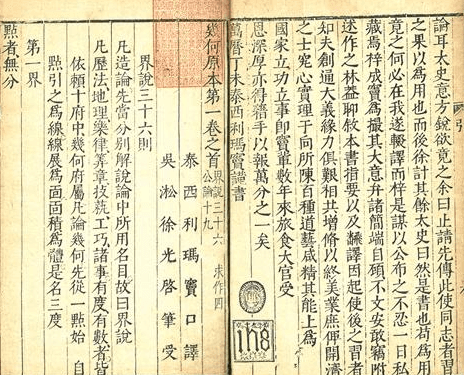 論耳太史意方銳欲竟之余曰止請先傳此使同志者習
之果以為用也而後徐計其餘太史曰然是書也苟為用
竟之何必在我遂輟譯而梓是謀以公布之不忍一日私
藏焉梓成竇為撮其大意弁諸簡端自顧不文安敢竊附
述作之林蓋聊敘本書指要以及翻譯因起使後之習者
知夫創通大義緣力俱艱相共增修以終美業庶俾開濟
之士究心實理于向所陳百種道藝咸精其能上為
國家立功立事即竇輩數年來旅食大官受
恩深厚亦得藉手以報萬分之一矣
萬曆丁未泰西利瑪竇謹書
148
幾何原本第一卷之首 界說三十六 公論十九 求作四
泰西利瑪竇口譯
吳淞徐光啓筆受
界說三十六則
凡造論先當分別解說論中所用名目故曰界說
凡歷法地理樂律筭章技藝工巧諸事有度有數者皆
依賴十府中幾何府屬凡論幾何先從一點始自
點引之為線線展為面面積為體是名三度
第一界
點者無分